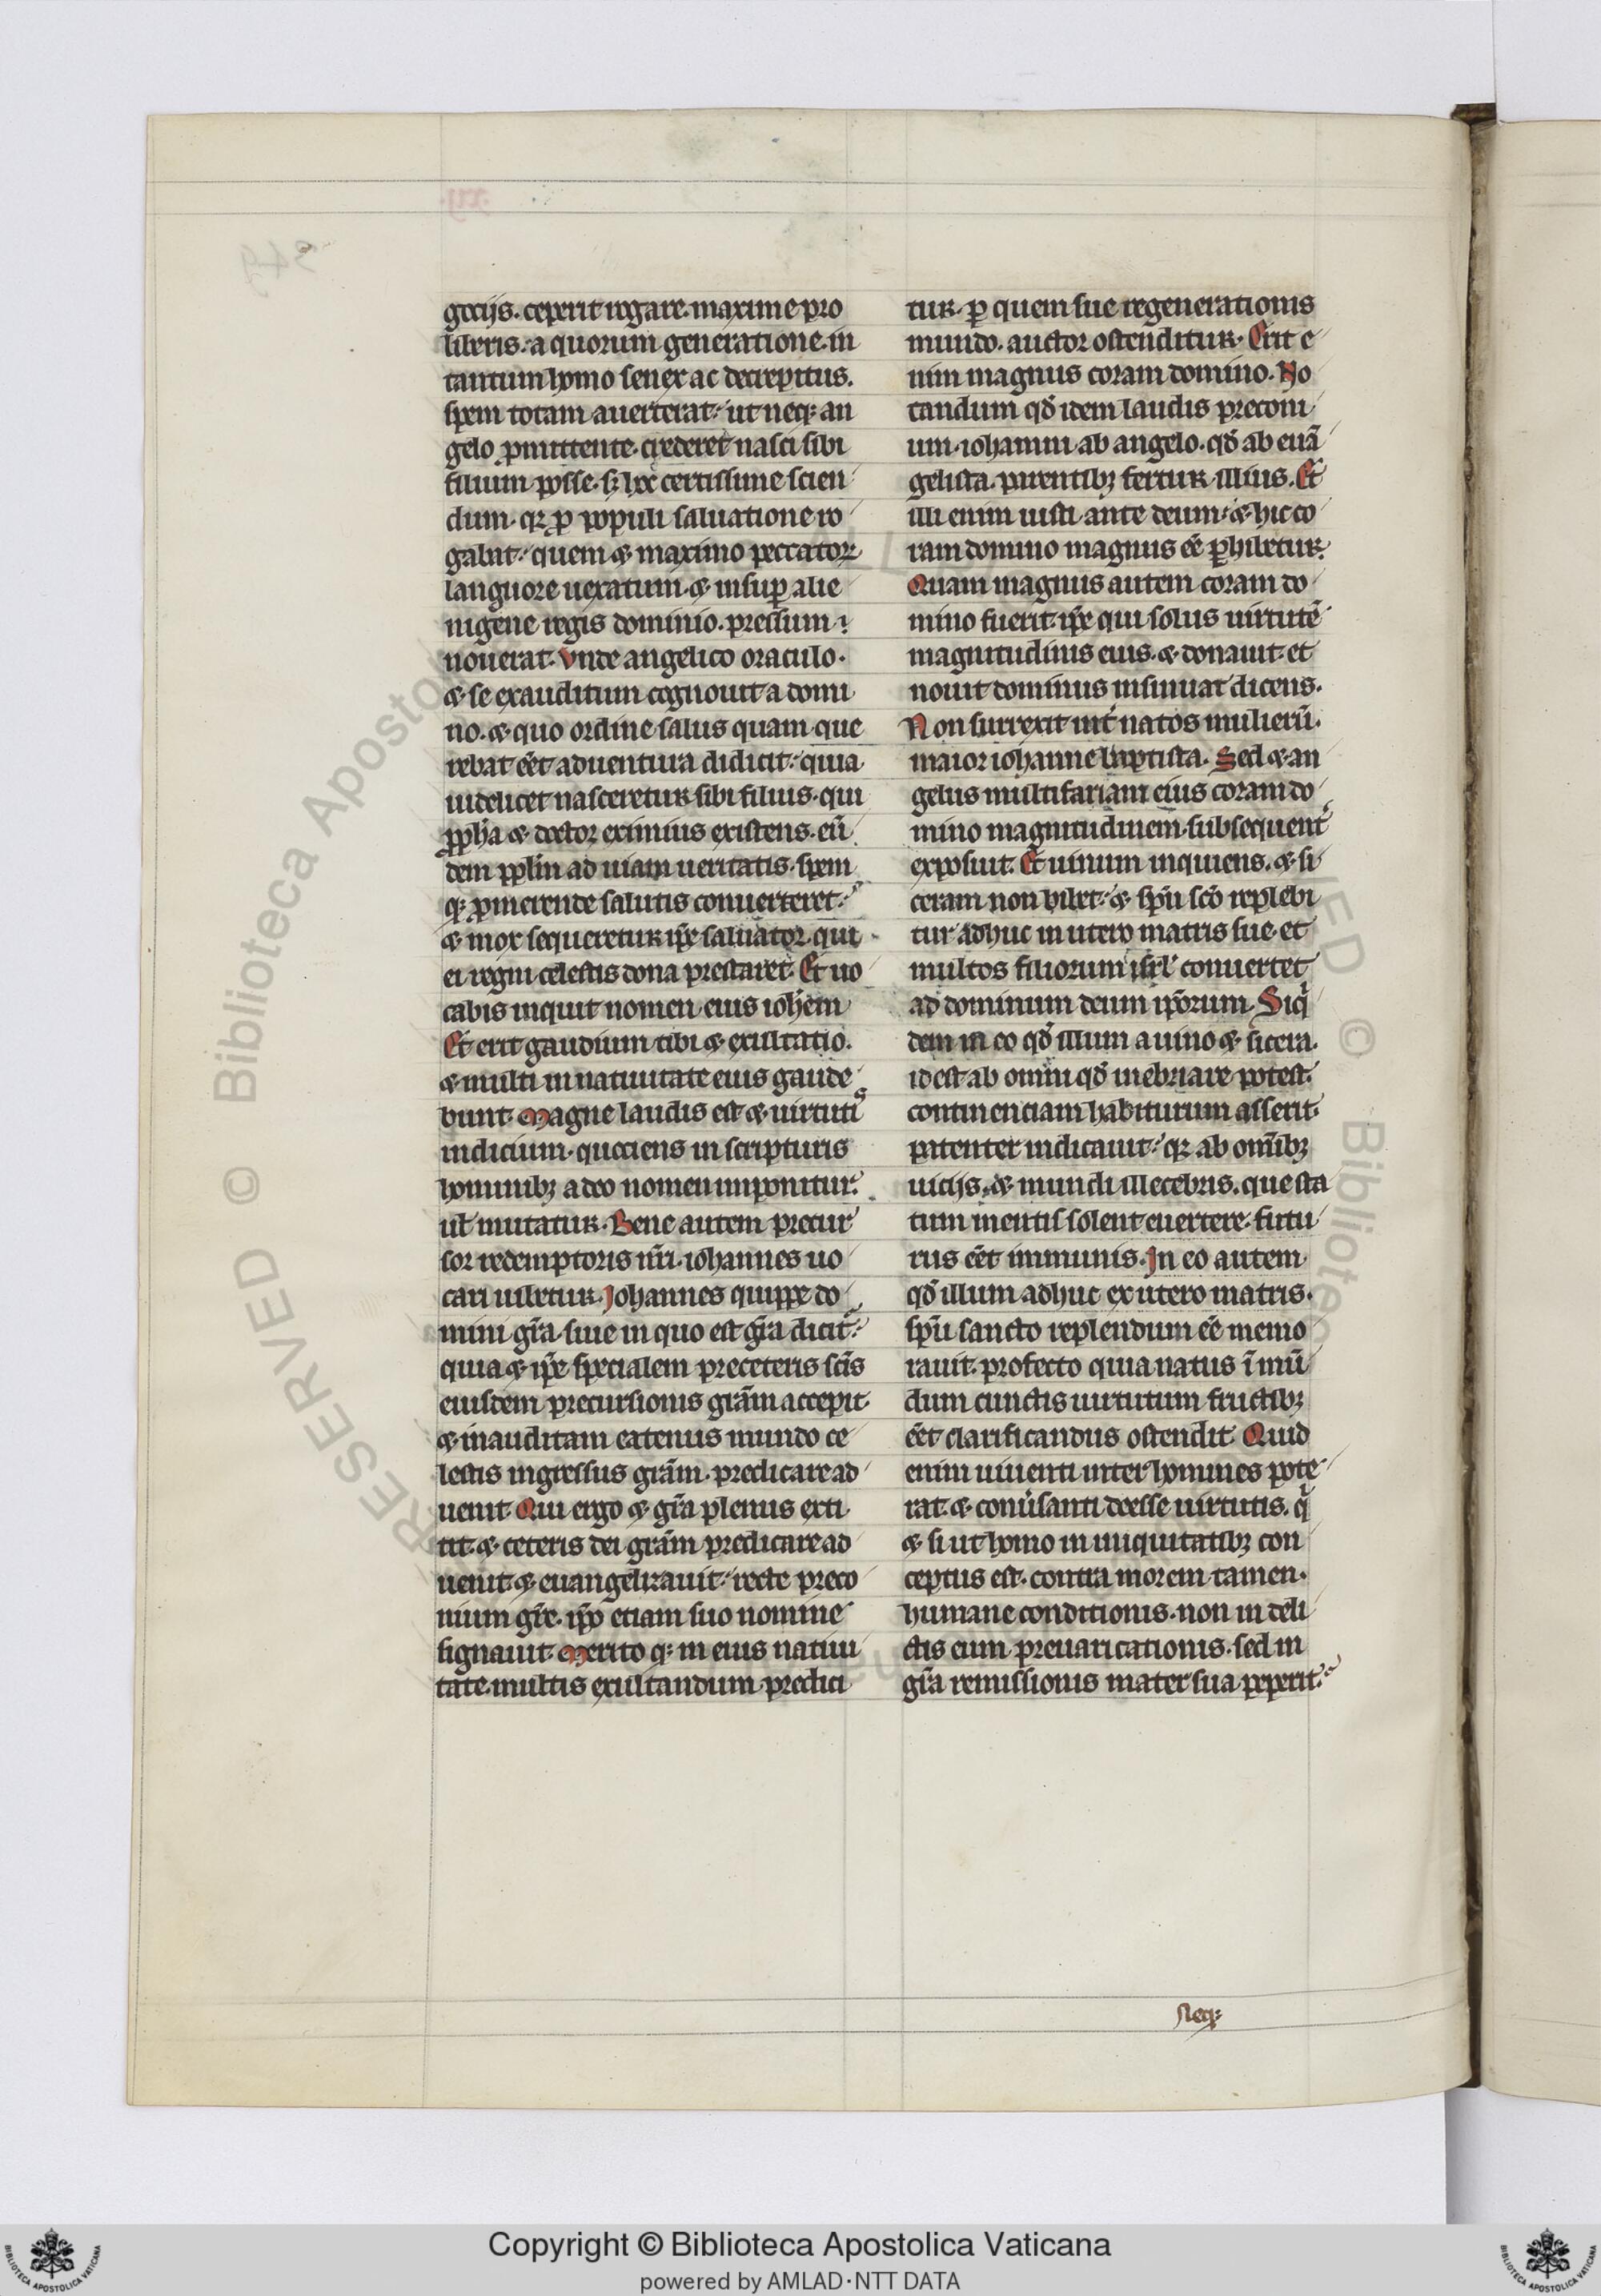 gociis. ceperit rogare. maxime pro
liberis. a quorum generatione. in
tantum homo senex ac decrepitus.
spem totam auerterat. ut neqꝫ an
gelo ꝓmittente. crederet nasci sibi
filium posse. sꝫ hoc certissime scien
dum. qꝛ ꝓ populi saluatione ro
gabat. quem ⁊ maximo peccatoꝝ
languore uexatum. ⁊ insuꝑ alie
nigene regis dominio. pressum
nouerat. Vnde angelico oraculo.
⁊ se exauditum cognouit a domi
no. ⁊ quo ordine salus quam que
rebat eēt aduentura didicit. quia
uidelicet nasceretur sibi filius. qui
ꝓpha ⁊ doctor eximius existens. eū
dem pplm̄ ad uiam ueritatis. spem
qꝫ ꝓmerende salutis conuerteret.
⁊ mox sequeretur ip̄e saluator. qui
ei regni celestis dona prestaret. Et uo
cabis inquit nomen eius ioh̄em
Et erit gaudium tibi ⁊ exultatio.
⁊ multi in natiuitate eius gaude
bunt. Magne laudis est ⁊ uirtutis
indicium. quociens in scripturis
hominibꝫ a deo nomen imponitur.
ul̓ mutatur. Bene autem precur
sor redemptoris nr̄i. iohannes uo
cari iubetur. Johannes quippe do
mini gr̄a. siue in quo est gr̄a dicit᷑.
quia ⁊ ip̄e specialem preceteris scīs
eiusdem precursionis gr̄am accepit.
⁊ inauditam eatenus mundo ce
lestis ingressus gr̄am. predicare ad
uenit. Qui ergo ⁊ gr̄a plenus exti
tit. ⁊ ceteris dei gr̄am predicare ad
uenit. ⁊ euangelizauit. recte preco
nium gr̄e. ip̄o etiam suo nomine
signauit. Merito qꝫ in eius natiui
tate. multis exultandum. predici
tur. ꝑ quem sue regenerationis
mundo. auctor ostenditur. Erit e
nim magnus coram domino. No
tandum qd̓ idem laudis preconi
um. iohanni ab angelo. qd̓ ab euā
gelista. parentibꝫ fertur illius. Et
illi enim iusti ante deum. ⁊ hic co
ram domino magnus eē ꝑhibetur.
Quam magnus autem coram do
mino fuerit. ip̄e qui solus uirtutē
magnitudinis eius. ⁊ donauit. et
nouit dominus insinuat dicens.
Non surrexit int̓ natos mulierū.
maior iohanne baptista. Sed ⁊ an
gelus multifariam eius coram do
mino magnitudinem. subsequent᷑
exposuit. Et uinum inquiens. ⁊ si
ceram non bibet. ⁊ spū scō replebi
tur adhuc in utero matris sue. et
multos filiorum isrl̓ conuertet
ad dominum deum ip̄orum. Siq̓
dem in eo qd̓ illum a uino ⁊ sicera.
id est ab omni qd̓ inebriare potest.
continenciam habiturum asserit.
patenter indicauit. qꝛ ab omībꝫ
uiciis. ⁊ mundi illecebris. que sta
tum mentis solent euertere. futu
rus eēt immunis. In eo autem
qd̓ illum adhuc ex utero matris.
spū sancto replendum eē memo
rauit. profecto quia natus ī mū
dum cunctis uirtutum fructibꝫ
eēt clarificandus ostendit. Quid
enim uiuenti inter homines pote
rat. ⁊ conu̓santi deesse uirtutis. q̓
⁊ si ut homo in iniquitatibꝫ con
ceptus est. contra morem tamen.
humane conditionis. non in deli
ctis eum preuaricationis. sed in
gr̄a remissionis mater sua peperit.
Neqꝫ
Copyright © Biblioteca Apostolica Vaticana
powered by AMLAD·NTT DATA